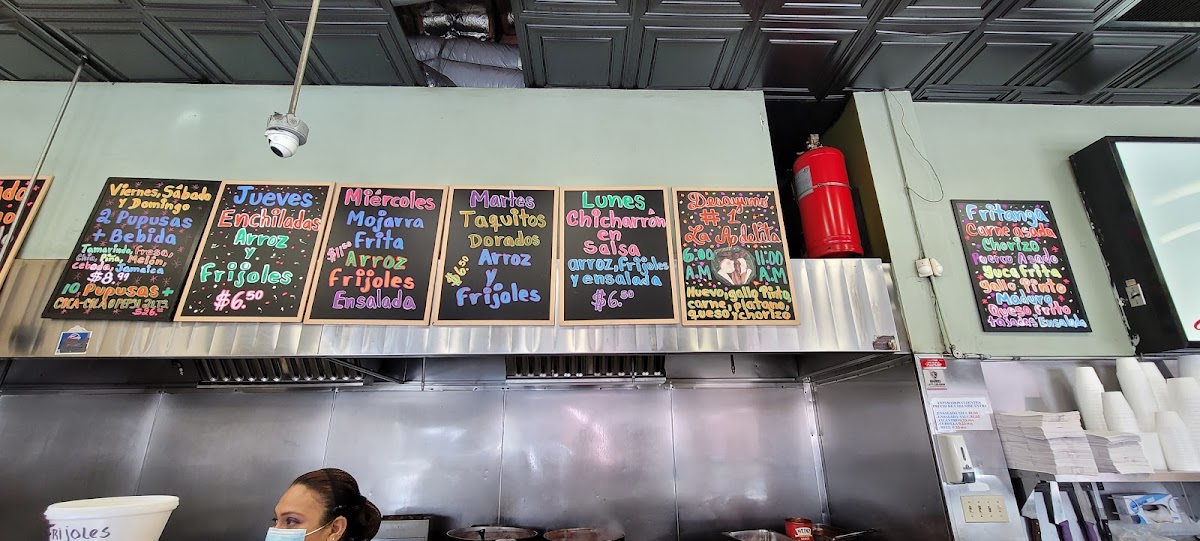 Viernes, Sábado
y Domingo
2 Pupusas
+
Bebida
Tamarindo, Fresa,
Chia, Piña, Melón,
cebada, Jamaica
$8.99
10 Pupusas +
COCA-COLA O PEPSI 2LTS
Jueves
Enchiladas
Arroz
y
Frijoles
$6.50
Miércoles
Mojarra
Frita
Arroz
Frijoles
Ensalada
Martes
Taquitos
Dorados
$6.50
Arroz
y
Frijoles
Lunes
Chicharrón
en
Salsa
arroz, frijoles
y ensalada
$6.50
Desayuno
#1
La Adelita
6:00 11:00
A.M A.M
Huevo, gallo pinto,
carne, platano
queso y chorizo
Fritanga
Carne asada
Chorizo
Puerco Asado
Yuca frita
gallo Pinto
Maduro
Queso frito
Tajadas Ensalada
FRIJOLES
HEINZ